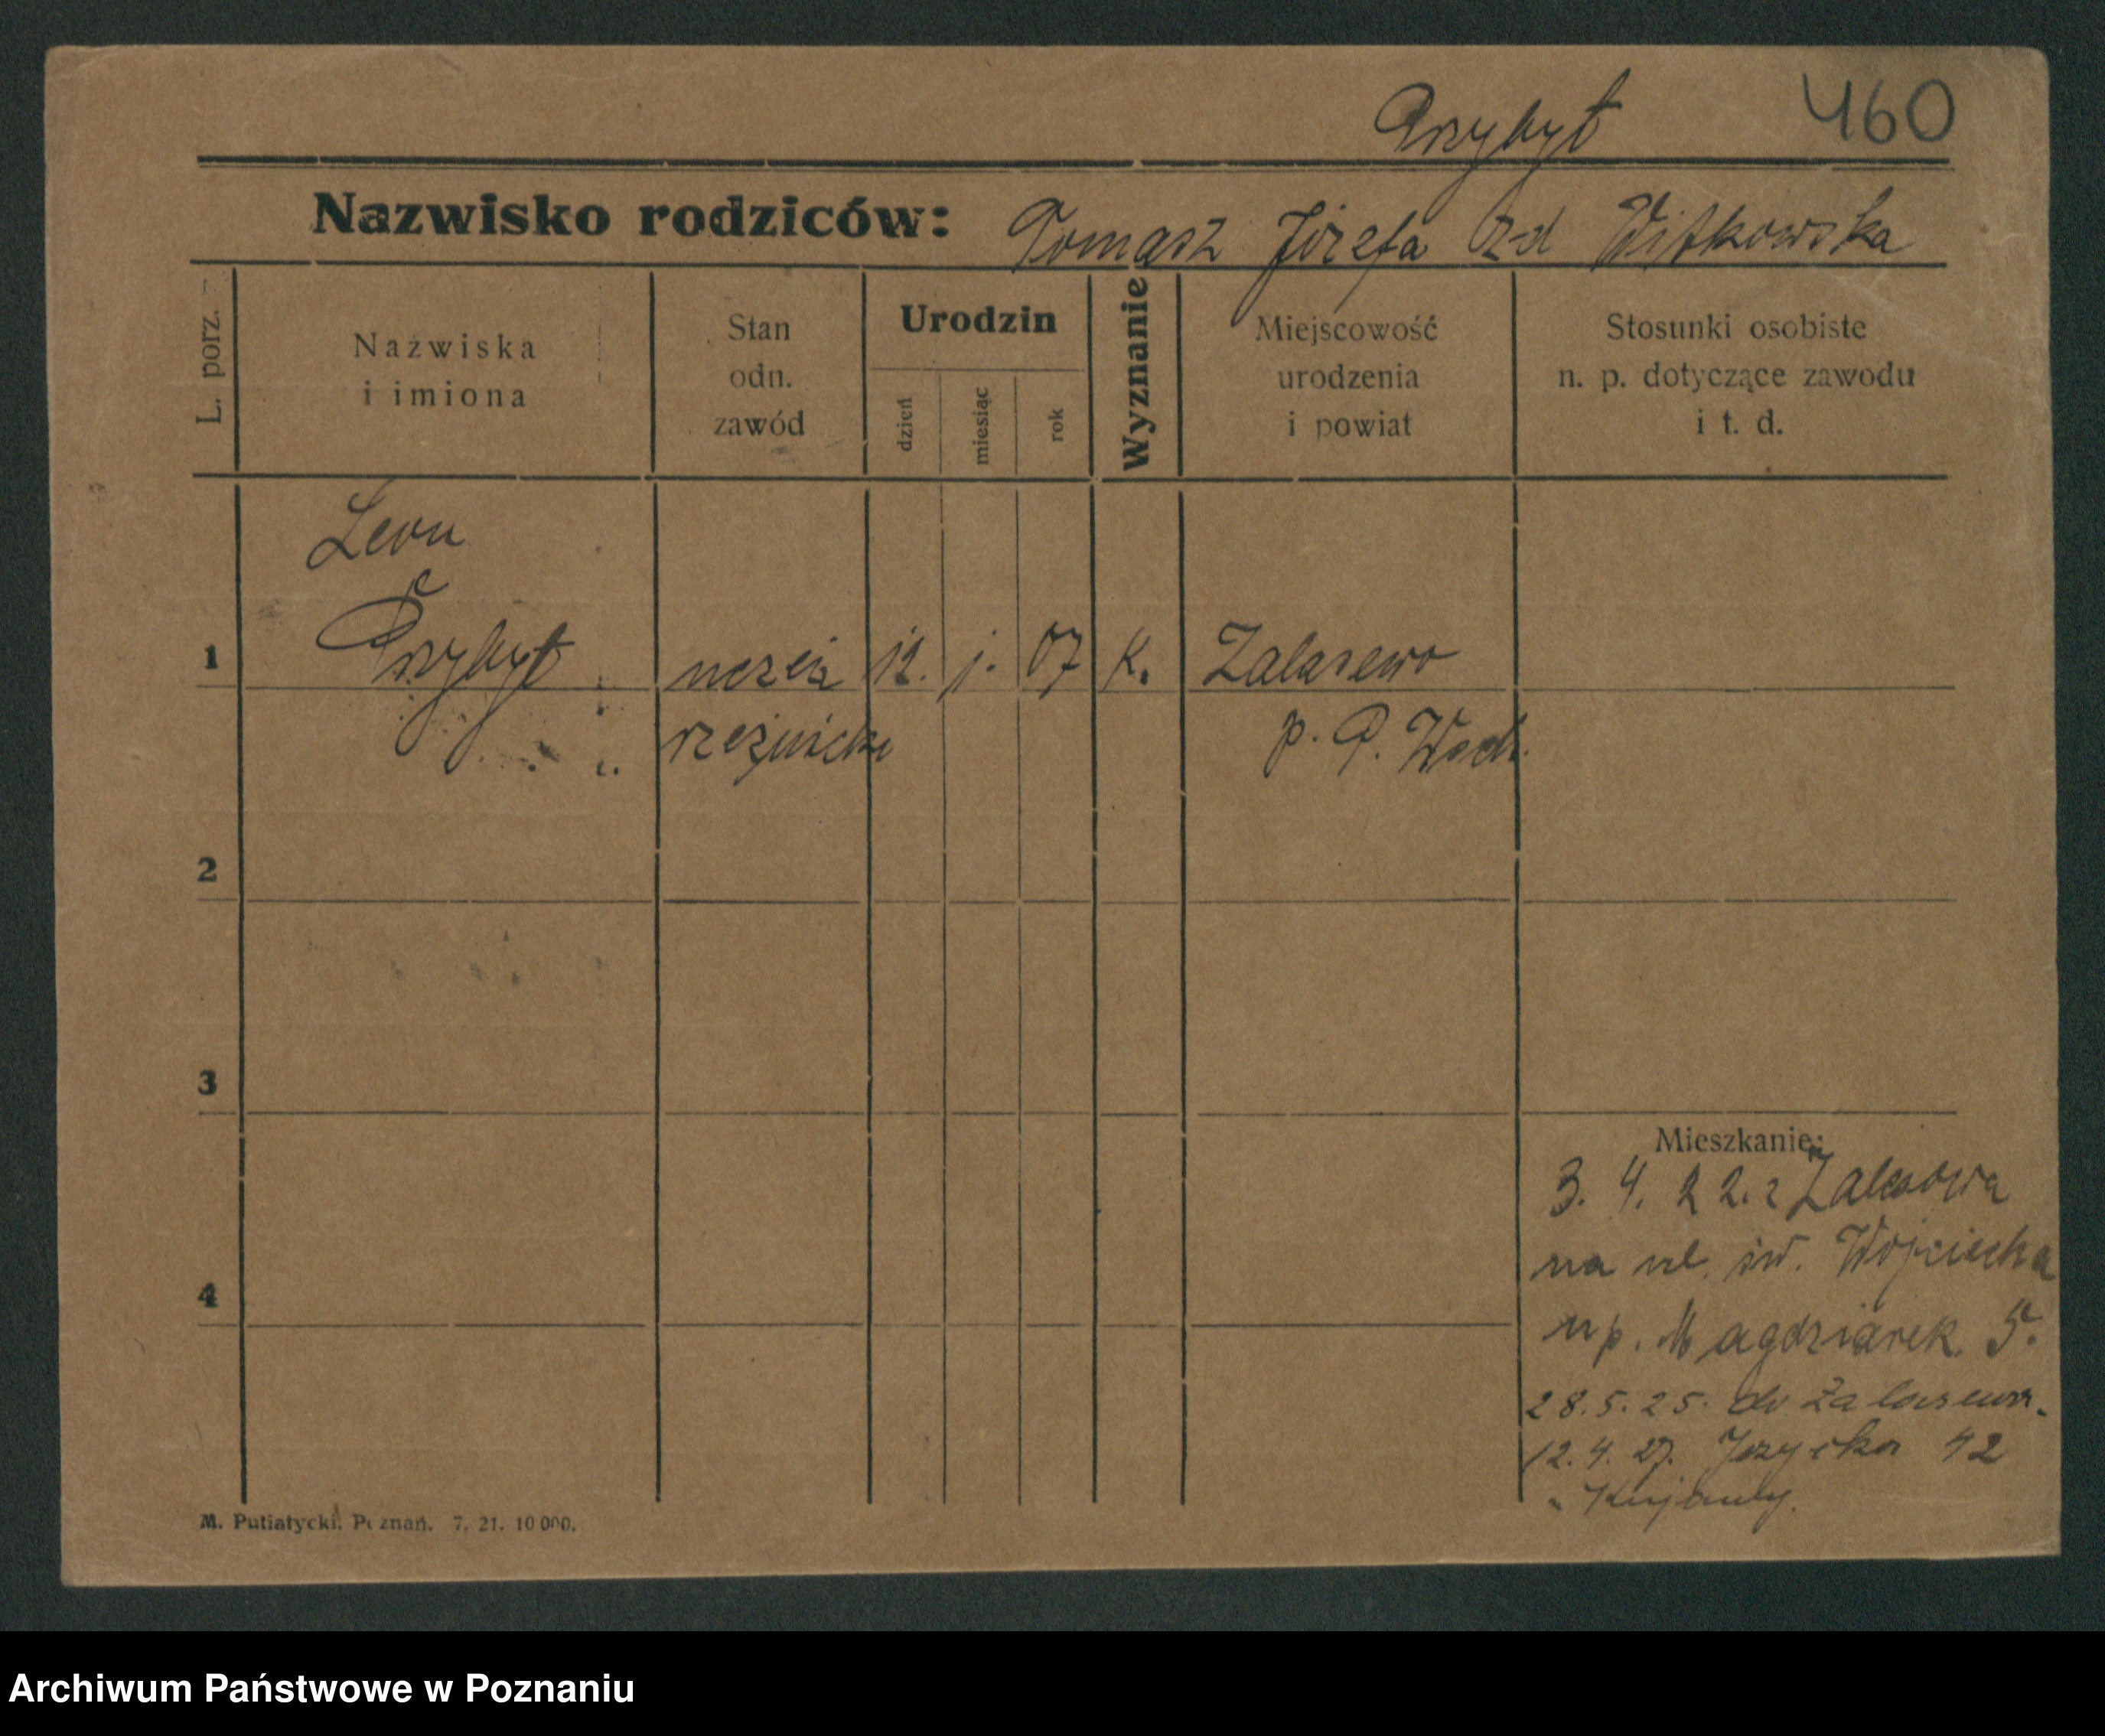 Przybył 460
Nazwisko rodziców: Tomasz Józefa zd Witkowska
L. porz.
Nazwiska
i imiona
Stan
odn.
zawód
Urodzin
dzień
miesiąc
rok
Wyznanie
Miejscowość
urodzenia
i powiat
Stosunki osobiste
n. p. dotyczące zawodu
i t. d.
Leon
1 Przybył uczeń 12. 1. 07 K. Zalasewo
rzeźnicki p. P. Wsch.
2
3
4
Mieszkanie:
3. 4. 22. z Zalasewa
na ul. św. Wojciecha
u p. Magdziarek 5.
28. 5. 25. do Zalasewa.
12. 4. 27. 42
M. Putiatycki. Poznań. 7. 21. 10 000.
Archiwum Państwowe w Poznaniu